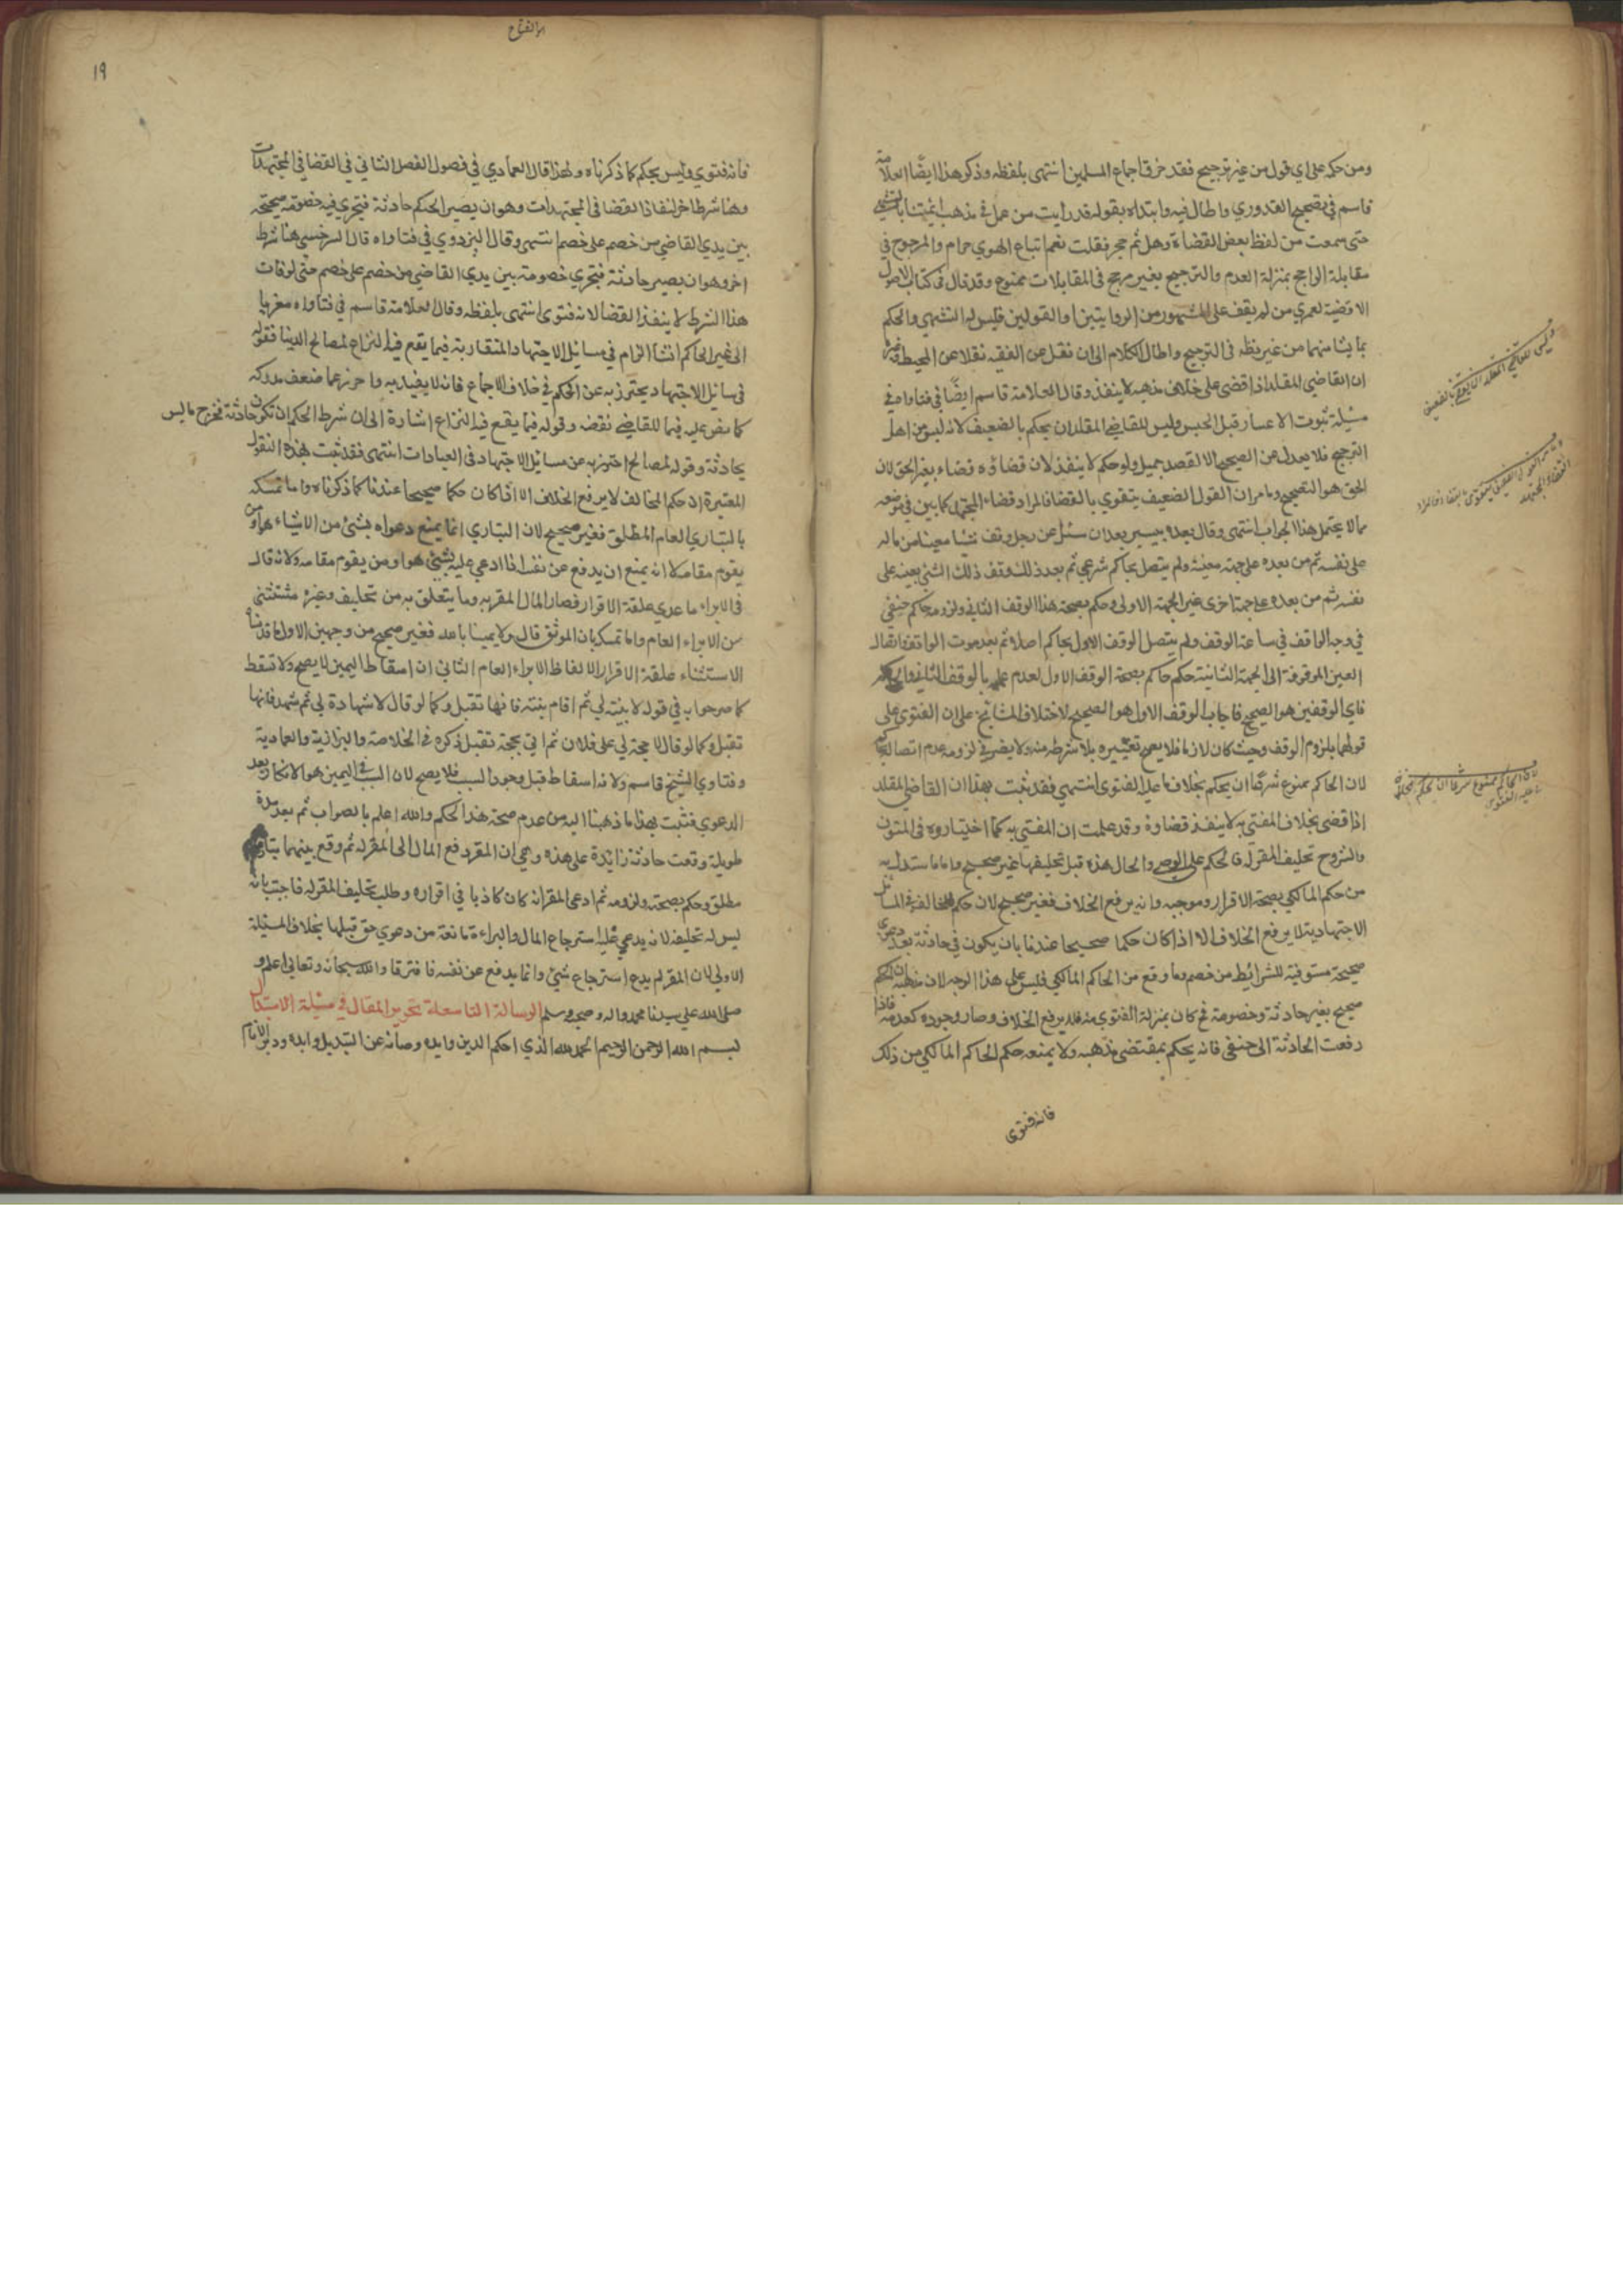 ومن حكم على اي قول من غير ترجيح فقد خرق اجماع المسلمين انتهى بلفظه وذكر هذا ايضا العلامة
قاسم في تصحيح القدوري واطال فيه وابتداه بقوله قد رايت من عمل في مذهب ائمتنا بالتشهي
حتى سمعت من لفظ بعض القضاة وهل ثم حجر فقلت نعم اتباع الهوي حرام والمرجوح في
مقابلة الراجح بمنزلة العدم والترجيح بغير مرجح في المقابلات ممنوع وقد قال في كتاب الاصول
الاقضية لعمري من لم يقف على المشهور من الروايتين او القولين فليس له التشهي والحكم
بما يشا منهما من غير نظر في الترجيح واطال الكلام الى ان نقل عن الفقيه نقلا عن المحيط وغيره
ان القاضي المقلد اذا قضى على خلاف مذهبه لا ينفذ وقال العلامة قاسم ايضا في فتاواه في
مسيلة ثبوت الاعسار قبل الحبس وليس للقاضي المقلد ان يحكم بالضعيف لانه ليس من اهل
الترجيح فلا يعدل عن الصحيح الا لقصد جميل ولو حكم لا ينفذ لان قضاؤه قضاء بغير الحق لان
الحق هو الصحيح وما مر ان القول الضعيف يتقوي بالقضا فالمراد قضاء المجتهد كما بين في موضعه
مما لا يحتمل هذا الجواب انتهى وقال بعده بيسير بعد ان سئل عن رجل وقف شيا معينا من ماله
على نفسه ثم من بعده على جهة معينة ولم يتصل بحاكم شرعي ثم بعد ذلك وقف ذلك الشئ بعينه على
نفسه ثم من بعده على جهة اخرى غير الجهة الاولى وحكم بصحة هذا الوقف الثاني ولزومه حاكم حنفي
في وجه الواقف في ساعة الوقف ولم يتصل الوقف الاول بحاكم اصلا ثم بعد موت الواقف وانتقال
العين الموقوفة الى الجهة الثانية حكم حاكم بصحة الوقف الاول لعدم علمه بالوقف الثاني
فاي الوقفين هو الصحيح فاجاب الوقف الاول هو الصحيح لاختلاف المشايخ على ان الفتوى على
قولهما بلزوم الوقف وحيث كان لازما فلا يصح تغييره بلا شرط منه ولا يضر في لزومه عدم اتصاله
لان الحاكم ممنوع شرعا ان يحكم بخلاف ما عليه الفتوى انتهى فقد ثبت بهذا ان القاضي المقلد
اذا قضى بخلاف المفتي به لا ينفذ قضاوه وقد علمت ان المفتي به كما اختياروه في المتون
والشروح تحليف المقر له فالحكم على الوصي والحال هذه قبل تحليفها غير صحيح واما ما استدل به
من حكم المالكي بصحة الاقرار وموجبه وانه يرفع الخلاف فغير صحيح لان حكم المخالف في المسائل
الاجتهادية لا يرفع الخلاف الا اذا كان حكما صحيحا عندنا بان يكون في حادثة بعد دعوى
صحيحة مستوفية للشرائط من خصم وما وقع من الحاكم المالكي فليس على هذا الوجه لان مذهبه ان الحكم
صحيح بغير حادثة وخصومة فكان بمنزلة الفتوي منه فلم يرفع الخلاف وصار وجوده كعدمه فاذا
رفعت الحادثة الى حنفي فانه يحكم بمقتضى مذهبه ولا يمنعه حكم الحاكم المالكي من ذلك
فانه فتوى
لان الحاكم ممنوع شرعا ان يحكم بخلاف
ما عليه الفتوى
١٩
فانه فتوي وليس بحكم كما ذكرناه ولهذا قال العمادي في فصول الفصل الثاني في القضا في المجتهدات
وهنا شرط اخر لنفاذ القضا في المجتهدات وهو ان يصير الحكم حادثة فيجري فيه خصومة صحيحة
بين يدي القاضي من خصم على خصم انتهى وقال البزدوي في فتاواه قال السرخسي هنا شرط
اخر وهو ان يصير حادثة فيجري خصومة بين يدي القاضي من خصم على خصم حتى لو فات
هذا الشرط لا ينفذ القضا لانه فتوى انتهى بلفظه وقال العلامة قاسم في فتاواه معزيا
الى غير الحاكم انشا الزام في مسائل الاجتهاد المتقاربة فيما يقع فيه النزاع لمصالح الدينا فقوله
في مسايل الاجتهاد يحترز به عن الحكم في خلاف الاجماع فانه لا يفيد به واحترز عما ضعف مدركه
كما نص عليه فيما للقاضي نقضه وقوله فيما يقع فيه النزاع اشارة الى ان شرط الحكم ان تكون حادثة فخرج ما ليس
بحادثة وقوله لمصالح احترز به عن مسائل الاجتهاد في العبادات انتهى فقد ثبت بهذه النقول
المعتبرة ان حكم المخالف لا يرفع الخلاف الا اذا كان حكما صحيحا عندنا كما ذكرناه واما تمسكه
بالتباري العام المطلق فغير صحيح لان التباري انما يمنع دعواه بشئ من الاشياء هو او من
يقوم مقامه لا انه يمنع ان يدفع عن نفسه اذا ادعي عليه بشئ هو او من يقوم مقامه ولانه قال
في الابراء ما عدي علقة الاقرار فصار المال المقر به وما يتعلق به من تحليف وغيره مستثنى
من الابراء العام واما تمسكه بان الموثق قال ولا يمينا بالله فغير صحيح من وجهين الاول ما قدمناه
الاستثناء علقة الاقرار الالفاظ الابراء العام الثاني ان اسقاط اليمين لا يصح ولا تسقط
كما صرحوا به في قوله لا بينة لي ثم اقام بينة فانها تقبل وكما لو قال لا شهادة لي ثم شهد فانها
تقبل وكما لو قال لا حجة لي على فلان ثم اتي بحجة تقبل ذكره في الخلاصة والبزازية والعمادية
وفتاوي الشيخ قاسم ولانه اسقاط قبل وجود السبب فلا يصح لان السبب في اليمين هو الانكار بعد
الدعوي فثبت بهذا ما ذهبنا اليه من عدم صحة هذا الحكم والله اعلم بالصواب ثم بعد مدة
طويلة وقعت حادثة زائدة على هذه وهي ان المقر دفع المال الى المقر له ثم وقع بينهما
مطلق وحكم بصحته ولزومه ثم ادعى المقر انه كان كاذبا في اقراره وطلب تحليف المقر له فاجبت بانه
ليس له تحليفه لانه يدعي عليه استرجاع المال والبراءة مانعة من دعوي حق قبلها بخلاف المسيلة
الاولي لان المقر لم يدع استرجاع شئ وانما يدفع عن نفسه فافترقا والله سبحانه وتعالى اعلم و
صلى الله على سيدنا محمد واله وصحبه وسلم الرسالة التاسعة تحرير المقال في مسيلة الاستبدال
بسم الله الرحمن الرحيم الحمد لله الذي احكم الدين وايده وصانه عن التبديل وابده ودبر الانام